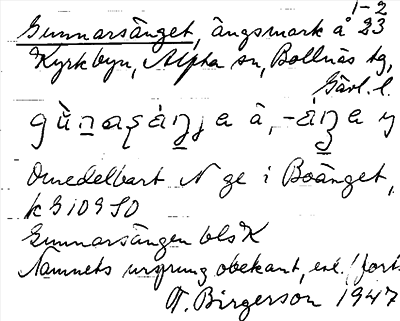 1-2
Gunnarsänget, ängsmark å 23
Kyrkbyn, Alfta sn, Bollnäs tg,
Gävl. l.
Omedelbart N ge i Boänget,
k 9109 SO
Gunnarsängen bls K
Namnets ursprung obekant, enl. (forts
T. Birgerson 1947